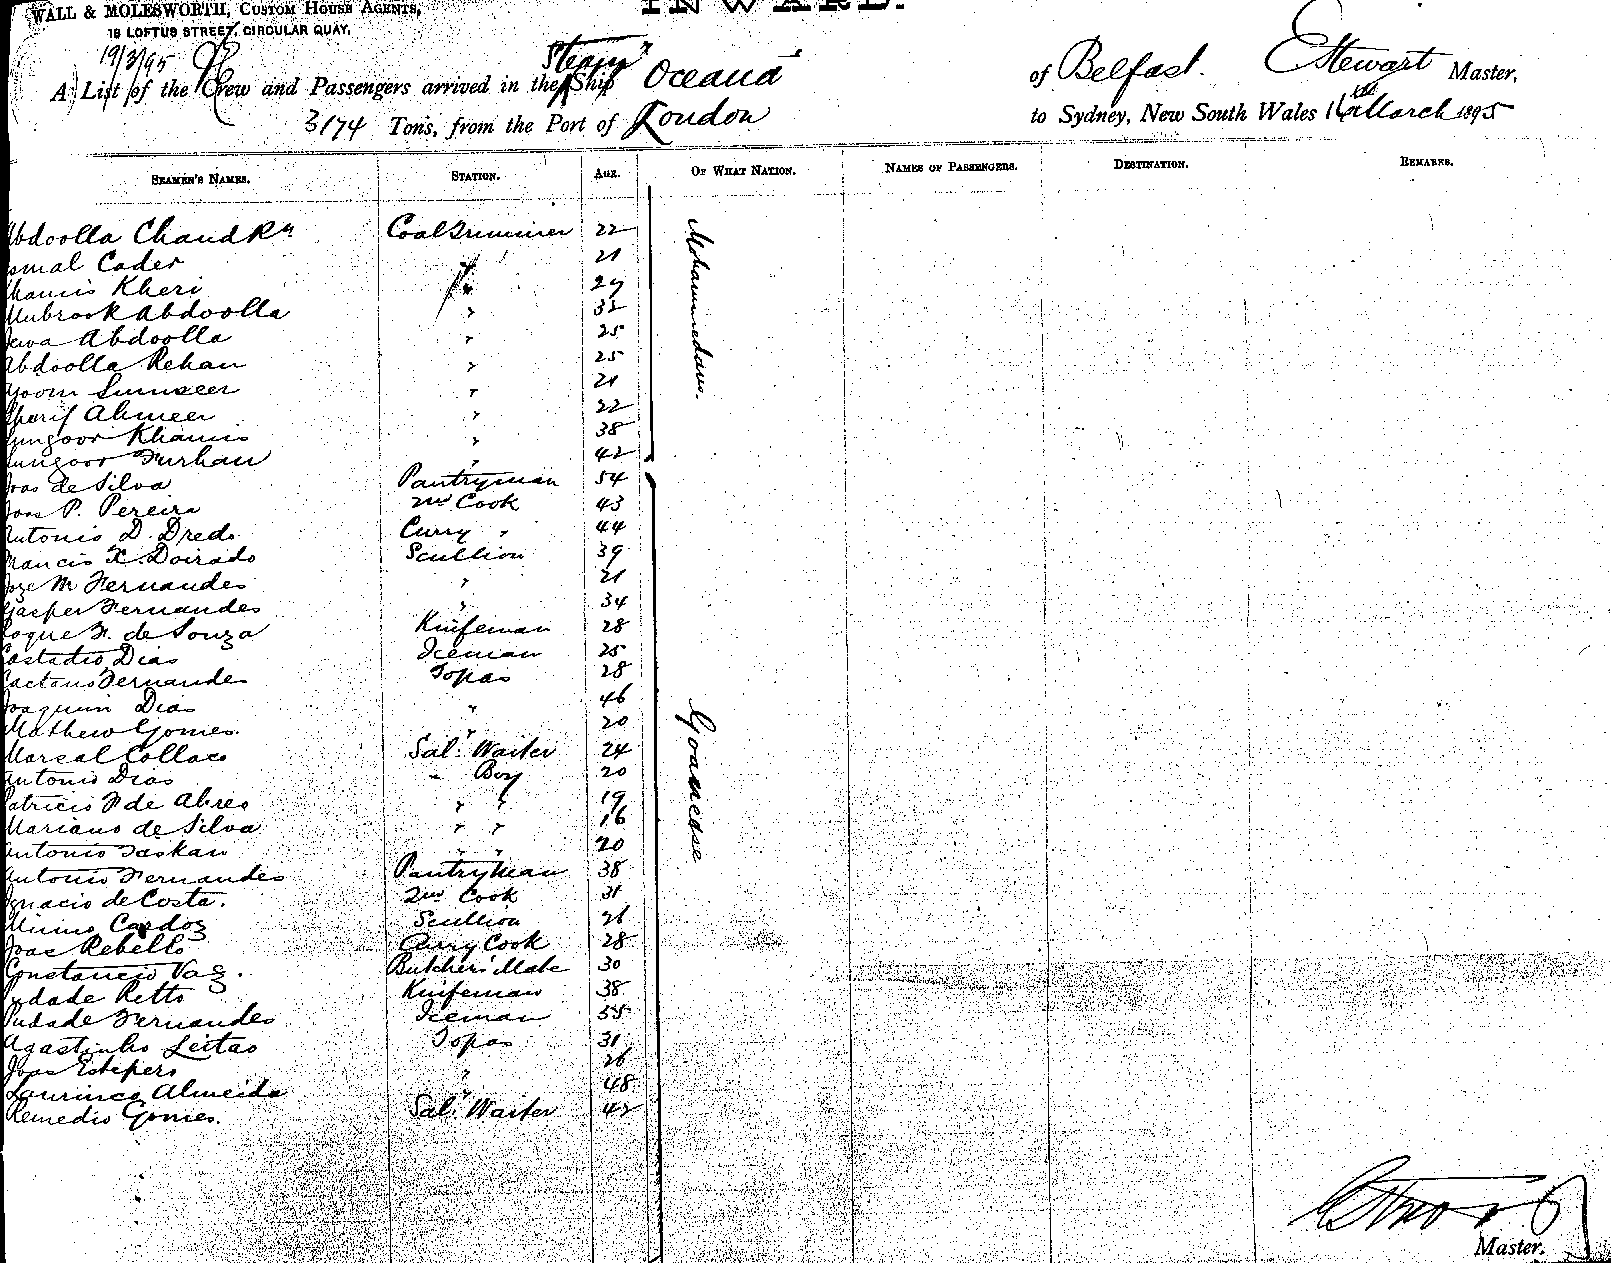 INWARD.
WALL & MOLESWORTH, CUSTOM HOUSE AGENTS,
18 LOFTUS STREET, CIRCULAR QUAY.
19/3/95
A List of the Crew and Passengers arrived in the Steam Ship Oceana of Belfast. E Stewart Master,
3174 Tons, from the Port of London to Sydney, New South Wales 16th March 1895
SEAMEN'S NAMES. STATION. AGE. OF WHAT NATION. NAMES OF PASSENGERS. DESTINATION. REMARKS.
Abdoolla Chand Coal Trimmer 22 Mohammedans.
Cader " 21
Khamis Kheri " 29
Mubrook Abdoolla " 32
Abdoolla " 25
Abdoolla Rehan " 25
Sumseer " 21
Sharif Ahmeer " 22
Khamis " 38
Furhan " 42
Joao de Silva Pantryman 54 Goanease
Joao P. Pereira 2nd Cook 43
Antonio D. Dredo Curry " 44
Francis X. Doirado Scullion 39
Joze M Fernandes " 21
Gasper Fernandes " 34
Roque F. de Souza Knifeman 28
Castadio Dias Iceman 25
Caetano Fernandes Topas 28
Joaquim Dias " 46
Mathew Gomes. " 20
Marcal Collaco Sal. Waiter 24
Antonio Dias " Boy 20
Patricio F de Abreo " " 19
Mariano de Silva " " 16
Antonio Taskar " " 20
Antonio Fernandes Pantryman 38
Ignacio de Costa. 2nd Cook 31
Minino Cardoz Scullion 21
Joao Rebello Curry Cook 28
Constancio Vaz. Butchers' Mate 30
Retto Knifeman 38
Pudade Fernandes Iceman 55
Agastinho Leitao Topas 31
Joao Estepers " 26
Laurinco Almeida " 48
Remedio Gomes. Sal. Waiter 42
Master.